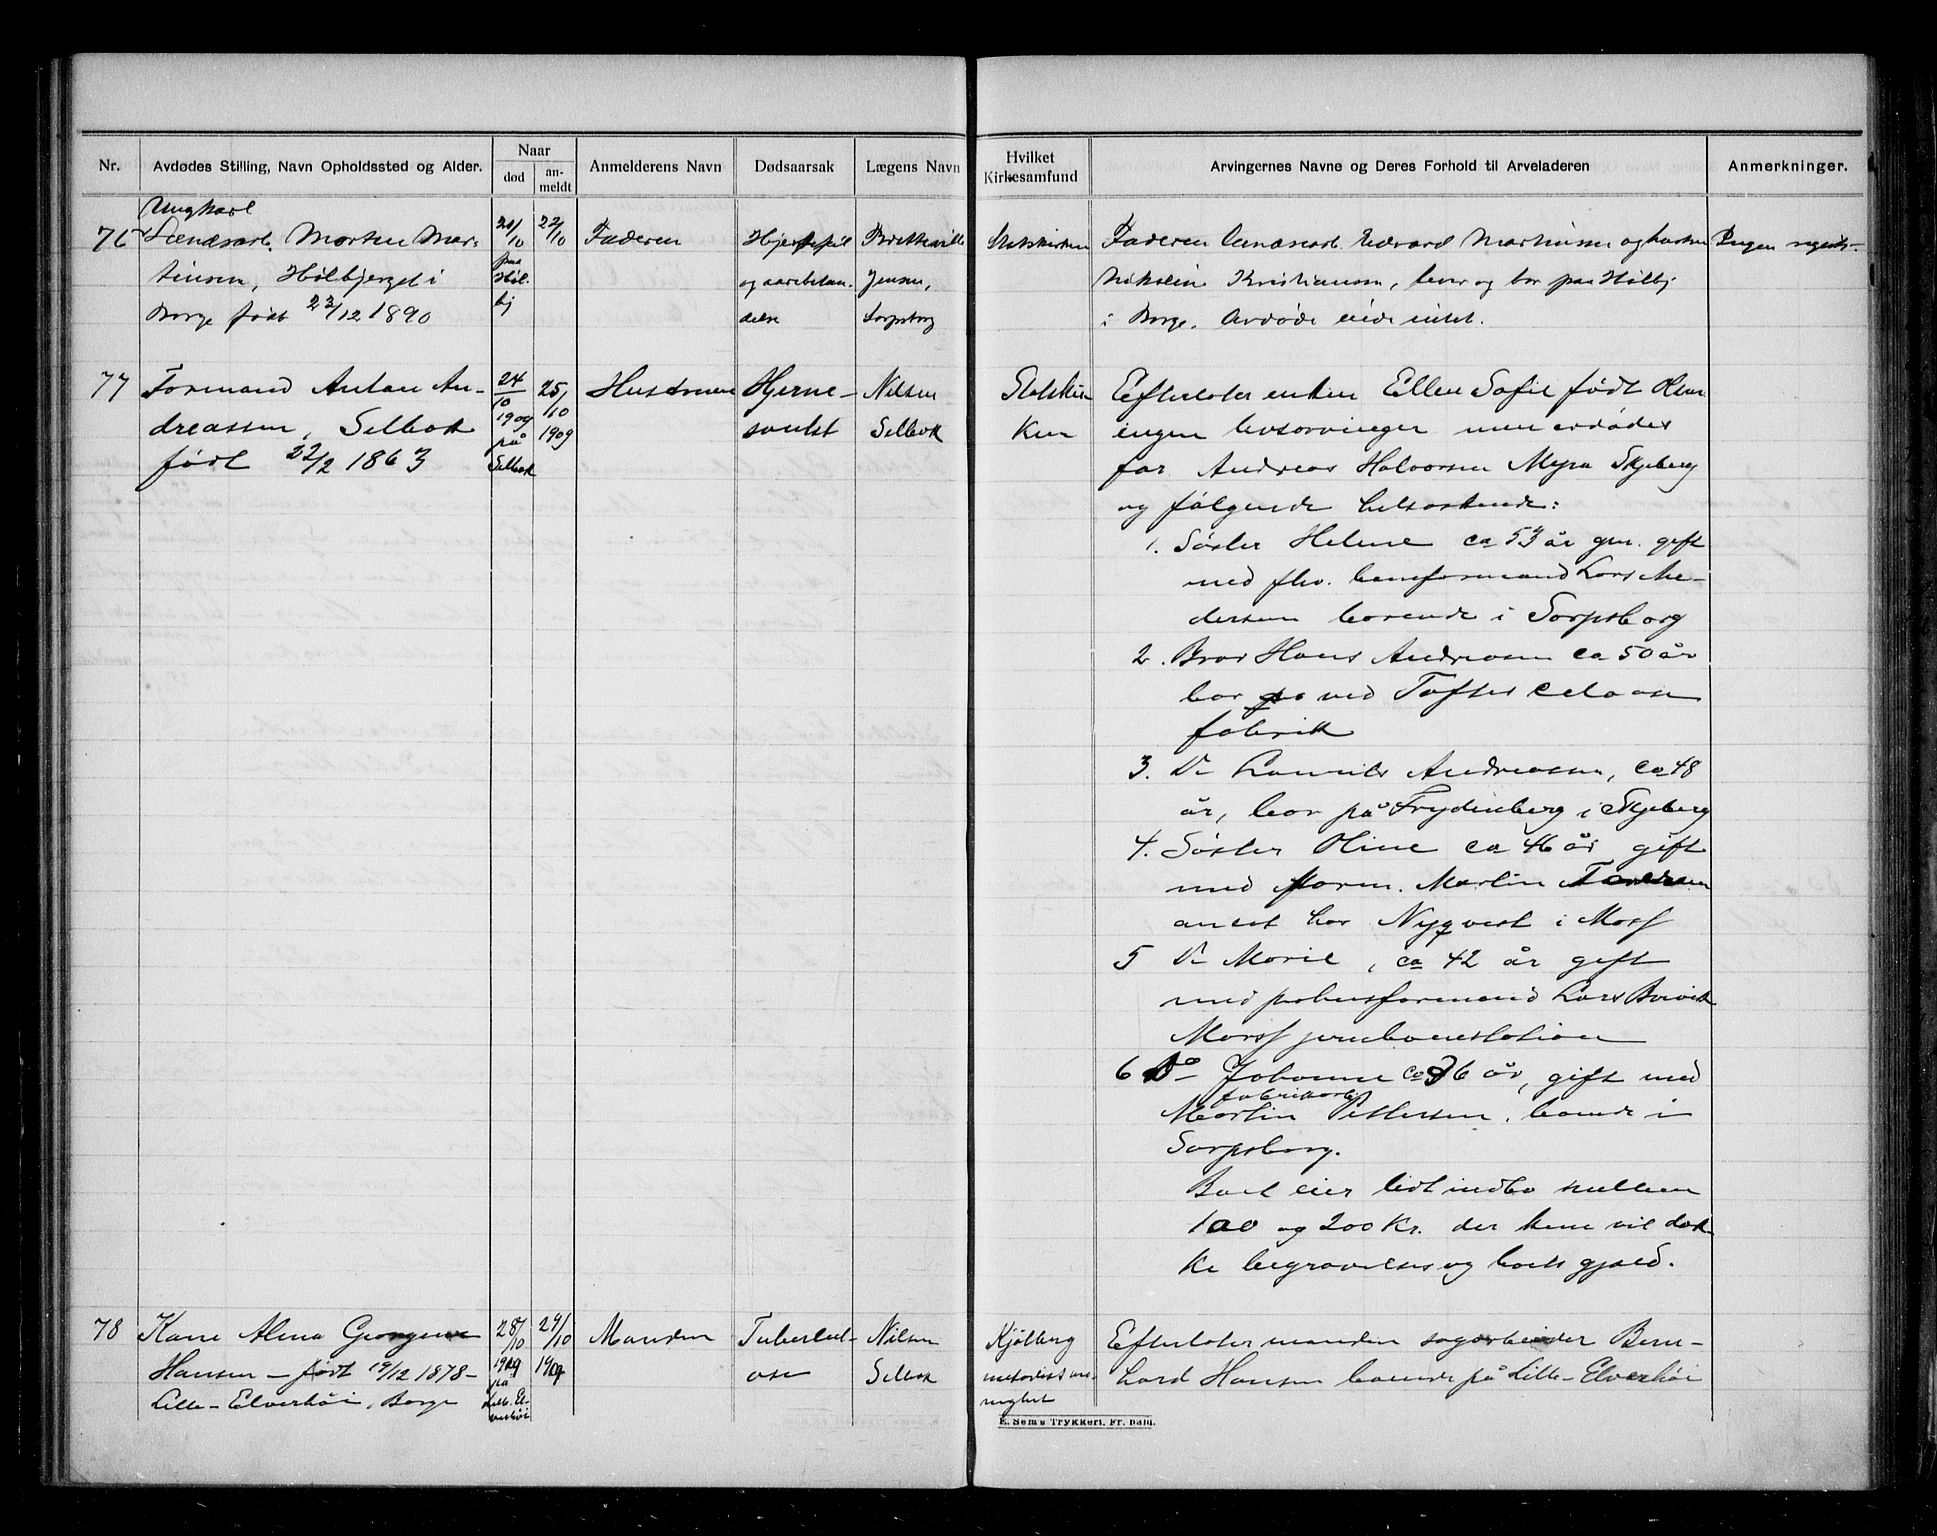 Nr.
Avdødes Stilling, Navn Opholdssted og Alder.
Naar
død
an-
meldt
Anmelderens Navn
Dødsaarsak
Lægens Navn
Hvilket
Kirkesamfund
Arvingernes Navne og Deres Forhold til Arveladeren
Anmerkninger.
76
Ungkarl
Lændsarb. Morten Mar-
tinsen, Hølbjerget i
Borge født 23/12 1890
21/10
paa
Høl-
bj
22/10
Faderen
Hjertefeil
og aarebetæn-
delse
Jensen,
Sarpsborg
Statskirken
Faderen Lændsarb. Edvard Martinsen og hustru
Nikoline Kristiansen, lever og bor paa Hølbj
i Borge. Avdøde eiede intet.
Ingen
77
Formand Anton An-
dreassen, Selbak
født 22/2 1863
24/10
1909
på
Selbak
25/10
1909
Hustruen
Hjerne-
svulst
Nilsen
Selbak
Statskir-
ken
Efterlater enken Ellen Sofie født Olsen
ingen livsarvinger men avdødes
far Andreas Halvorsen Myra Skjeberg
og følgende helsøskende:
1. Søster Helene ca 53 år gm. gift
med fhv. baneformand Lars
dersen boende i Sarpsborg
2. Bror Hans Andreasen ca 50 år
bor ved Toftes
fabrik
3. Do Laurits Andreassen, ca 48
år, bor på Frydenberg i Skjeberg
4. Søster Oline ca 46 år gift
med form. Martin
ansat hos Nyqvist i Moss
5 Do Marie, ca 42 år gift
med pakhusformand Lars
Moss jernbanestation
6 Do Johanne ca 36 år, gift med
fabrikarb.
Martin Pettersen, boende i
Sarpsborg.
Boet eier lidt indbo mellem
100 og 200 Kr. der kun vil dæk-
ke begravelses og boets gjæld.
78
Kone Alma Georgine
Hansen – født 19/12 1878 –
Lille-Elverhöi, Borge
28/10
1909
på
Lille-El-
verhöi
29/10
1909
Manden
Tuberkul-
ose
Nilsen
Selbak
Kjølberg
metodistme-
nighet
Efterlater manden sagarbeider Bern-
hard Hansen boende på Lille-Elverhöi
E. Sem's Trykkeri. Fr. hald.